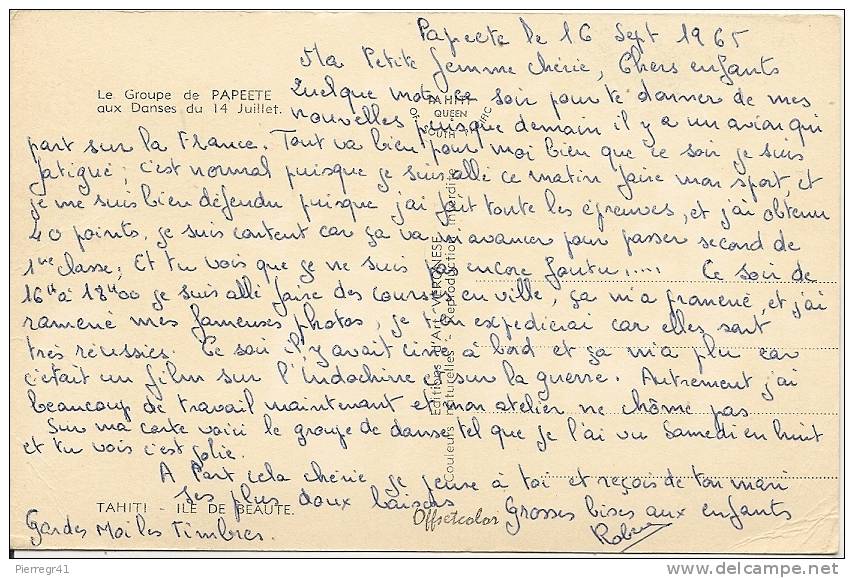 Papeete le 16 Sept 1965
Ma Petite femme chérie, Chers enfants
Le Groupe de PAPEETE
aux Danses du 14 Juillet.
TAHITI
QUEEN
OF SOUTH PACIFIC
Quelque mots ce soir pour te donner de mes
nouvelles puisque demain il y a un avion qui
part sur la France. Tout va bien pour moi bien que ce soir je suis
fatigué, c'est normal puisque je suis allé ce matin faire mon sport, et
je me suis bien défendu puisque j'ai fait toute les épreuves, et j'ai obtenu
40 points, je suis content car ça va m'avancer pour passer second de
1ère classe, Et tu vois que je ne suis pas encore foutu..... Ce soir de
16H à 18H00 je suis allé faire des courses en ville, ça m'a promené, et j'ai
ramené mes fameuses photos, je t'en expédierai car elles sont
très réussies. Ce soir il y avait ciné à bord et ça m'a plu car
c'était un film sur l'Indochine et sur la guerre. Autrement j'ai
beaucoup de travail maintenant et mon atelier ne chôme pas
Sur ma carte voici le groupe de danse tel que je l'ai vu Samedi en huit
et tu vois c'est jolie.
A Part cela chérie je pense à toi et reçois de ton mari
ses plus doux baisers
Grosses bises aux enfants
Robert
Gardes Moi les Timbres.
TAHITI - ILE DE BEAUTE.
Offsetcolor
Editions d'Art VERONESE
Couleurs naturelles - Reproduction interdite
Pierregr41
www.delcampe.net